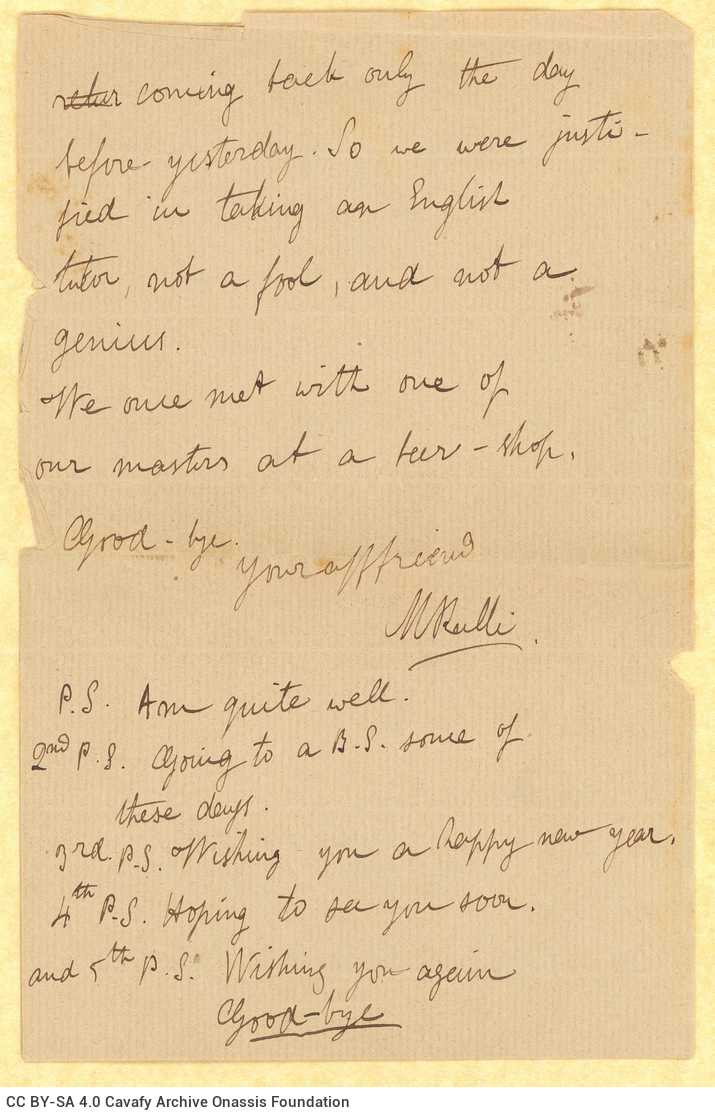 coming back only the day
before yesterday. So we were justi-
fied in taking an English
tutor, not a fool, and not a
genius.
We once met with one of
our masters at a beer-shop.
Good-bye.
Your aff friend
MRalli.
P.S. Am quite well.
2nd P.S. Going to a B.S. some of
these days.
3rd. P.S. Wishing you a happy new year.
4th P.S. Hoping to see you soon.
and 5th P.S. Wishing you again
Good-bye
CC BY-SA 4.0 Cavafy Archive Onassis Foundation